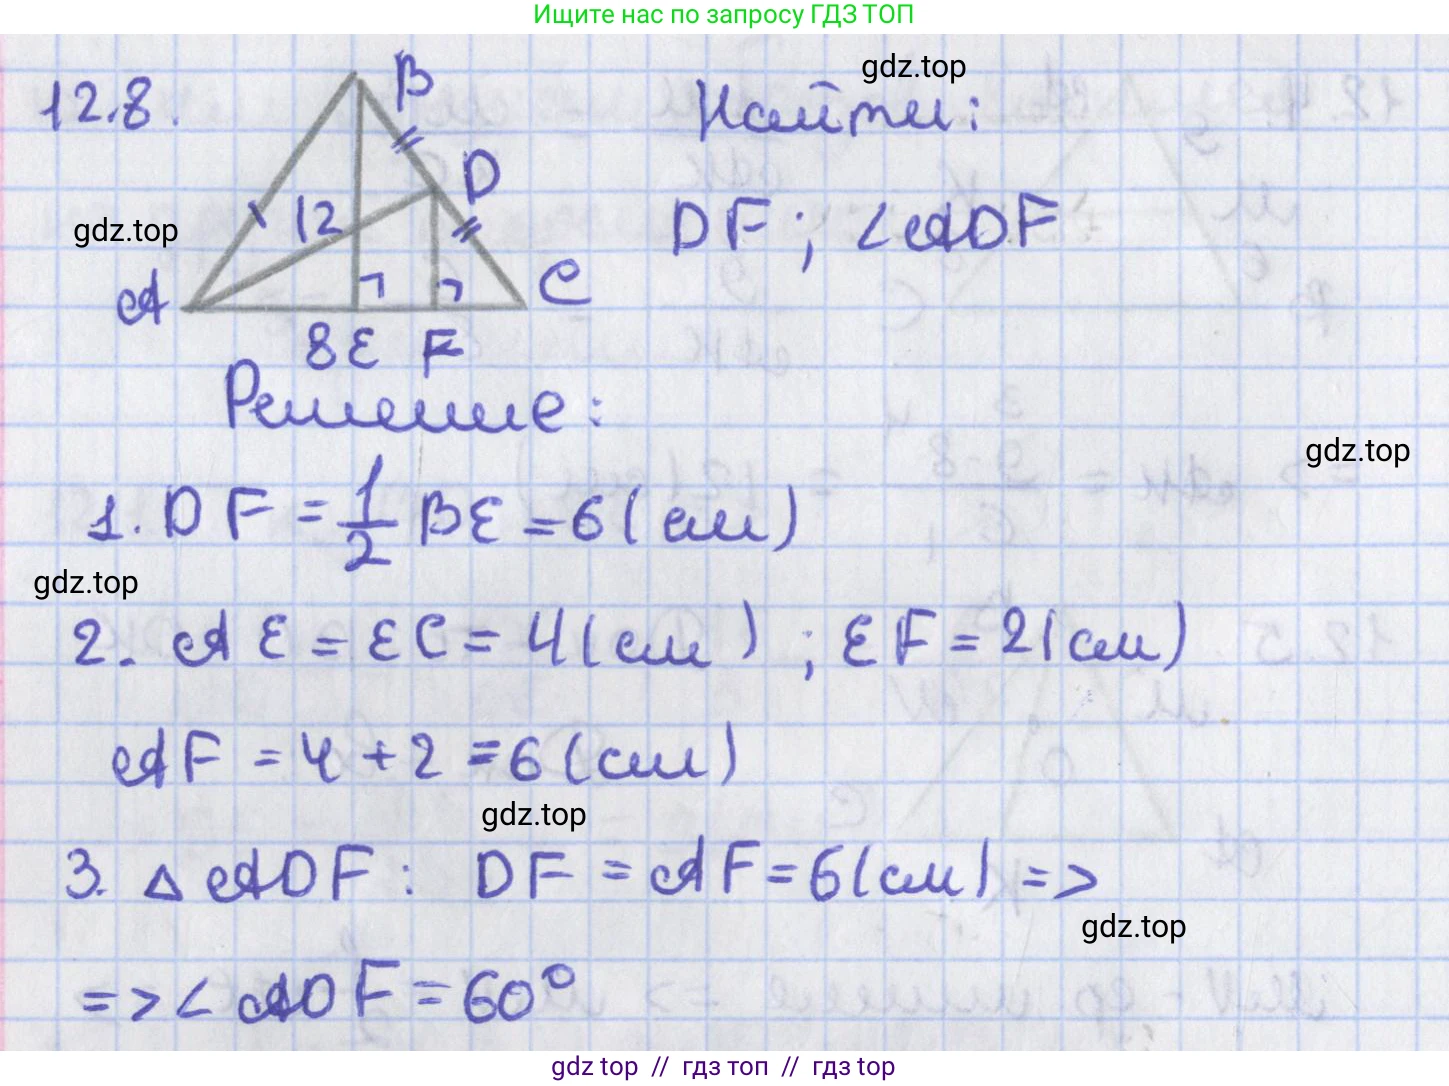 Ищите нас по запросу ГДЗ ТОП
12.8.
B
gdz.top
Найти:
D
12
gdz.top
DF; ∠ADF
A
C
8 E F
Решение:
gdz.top
1. DF = 1/2 BE = 6 (см)
gdz.top
2. AE = EC = 4 (см) ; EF = 2 (см)
AF = 4 + 2 = 6 (см)
gdz.top
3. △ ADF: DF = AF = 6 (см) =>
gdz.top
=> ∠ ADF = 60°
gdz top // гдз топ // гдз top